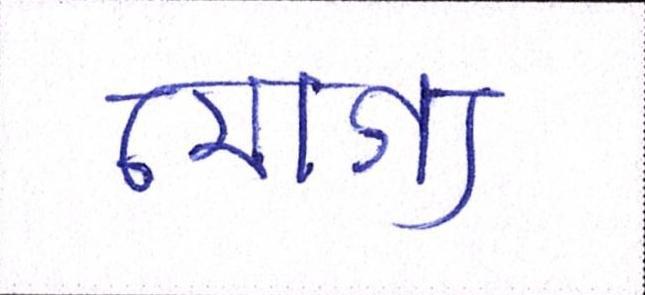 যোগ্য